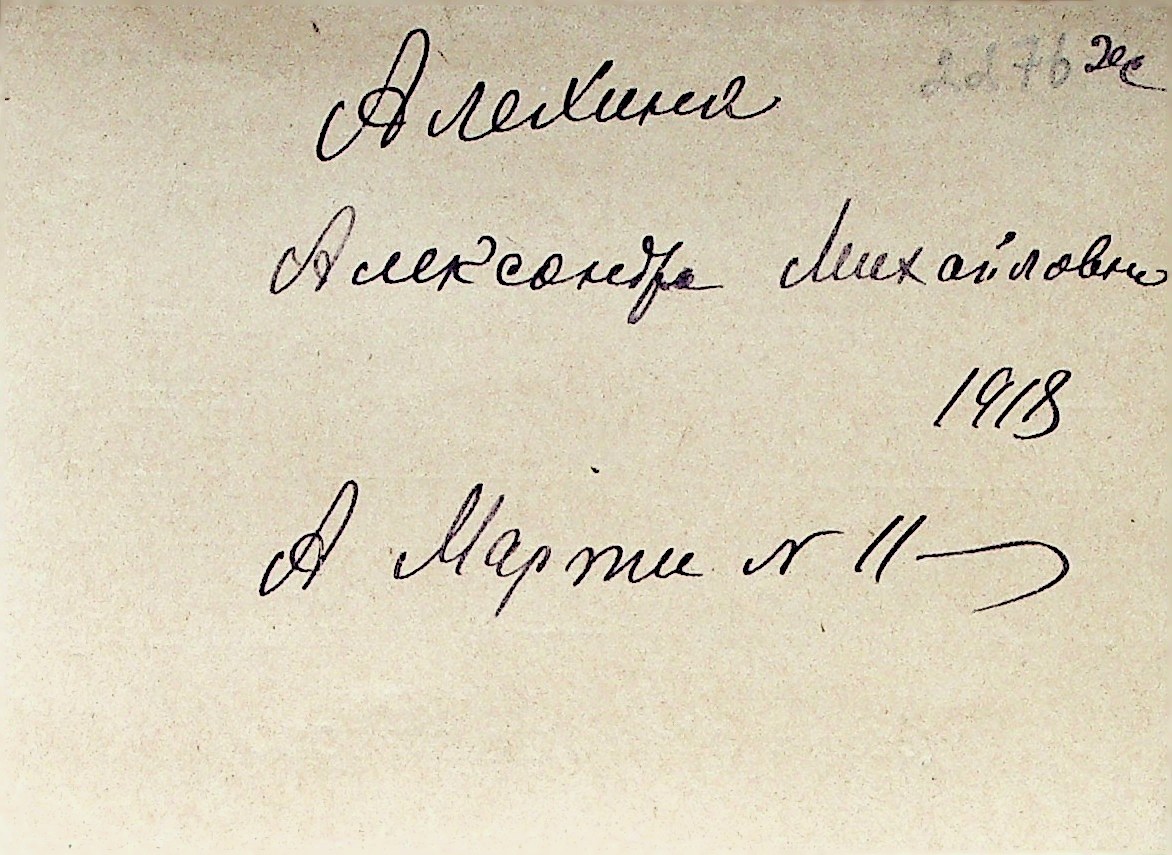 2276
Алехина
Александра Михайловна
1918
А Марти № 11